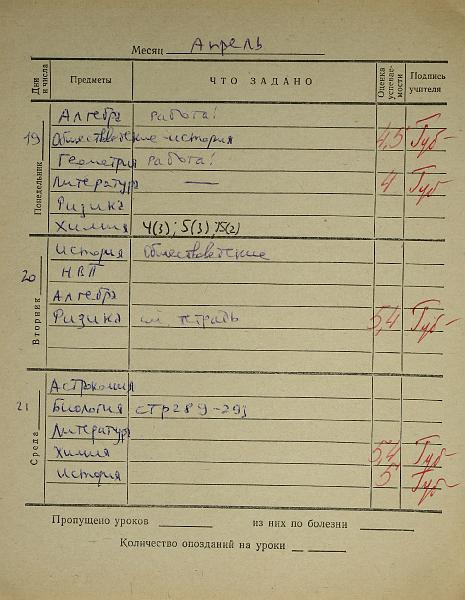 Месяц Апрель
Дни и числа Предметы ЧТО ЗАДАНО Оценка успевае-мости Подпись учителя
Понедельник 19
Алгебра работа!
Обществоведение история 4,5 Губ
Геометрия работа!
Литература — 4 Губ
Физика
Химия 4(3); 5(3);
Вторник 20
История Обществоведение
НВП
Алгебра
Физика тетрадь 5,4 Губ
Среда 21
Астрономия
Биология стр 289-293
Литература
Химия 5,4 Губ
История 5 Губ
Пропущено уроков из них по болезни
Количество опозданий на уроки